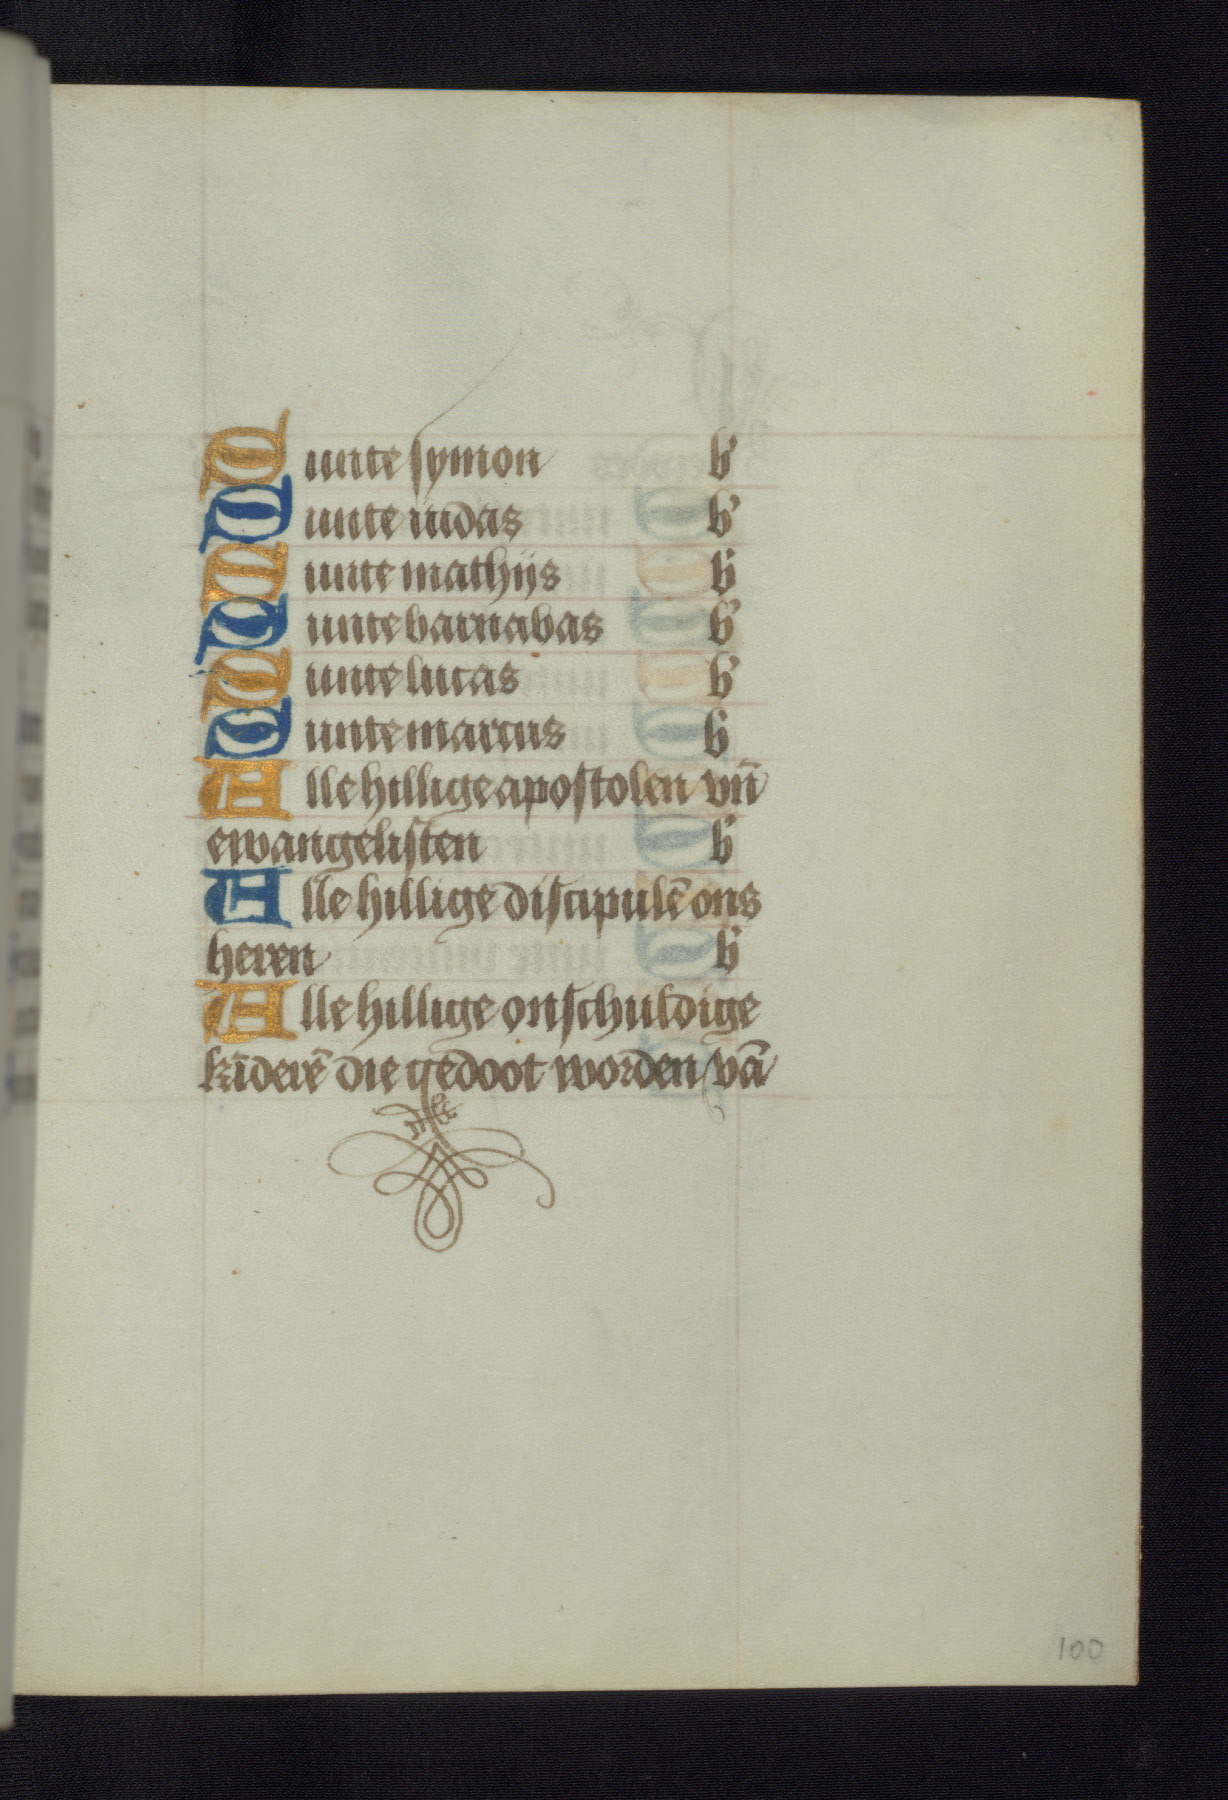 Sunte symon b'
Sunte iudas b'
Sunte mathijs b'
Sunte barnabas b'
Sunte lucas b'
Sunte marcus b'
Alle hillige apostolen vn̄
ewangelisten b'
Alle hillige discipulē ons
heren b'
Alle hillige onschuldige
kīderē die gedoot worden vā
100